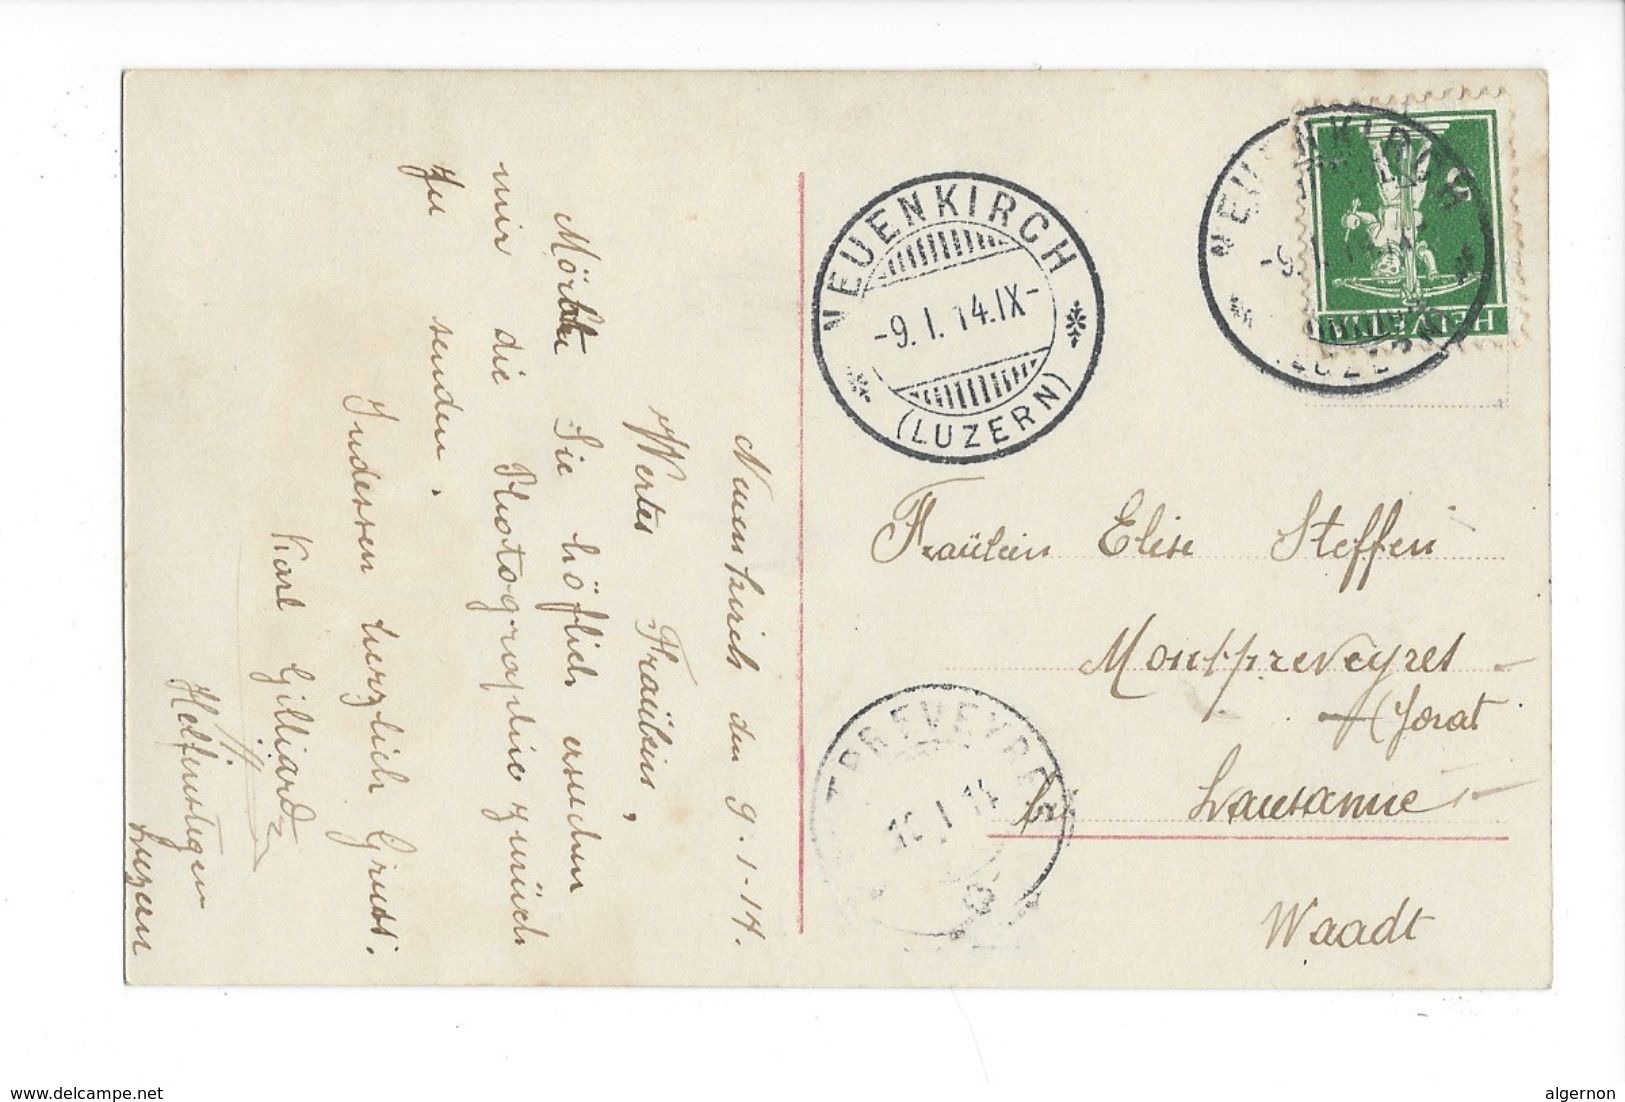 Neuenkirch den 9.1.14.
Wertes Fräulein,
Möchte Sie höflich ersuchen
mir die Photographie zurück
zu senden.
Indessen herzlich Gruss.
Karl Gilliard
Helfenstegen
Luzern
NEUENKIRCH
-9.I.14.IX-
(LUZERN)
NEUENKIRCH
-9.I.14
(LUZERN)
HELVETIA
5
Fräulein Elise Steffen
Montpreveyres
(Jorat
bei Lausanne
Waadt
TPREVEYRE
10.I.14
delcampe.net
algernon